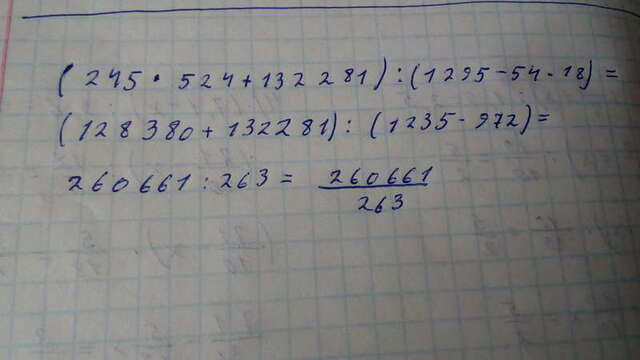 (245 · 524 + 132 281) : (1295 - 54 · 18) =
(128 380 + 132281) : (1235 - 972) =
260661 : 263 = 260661/263